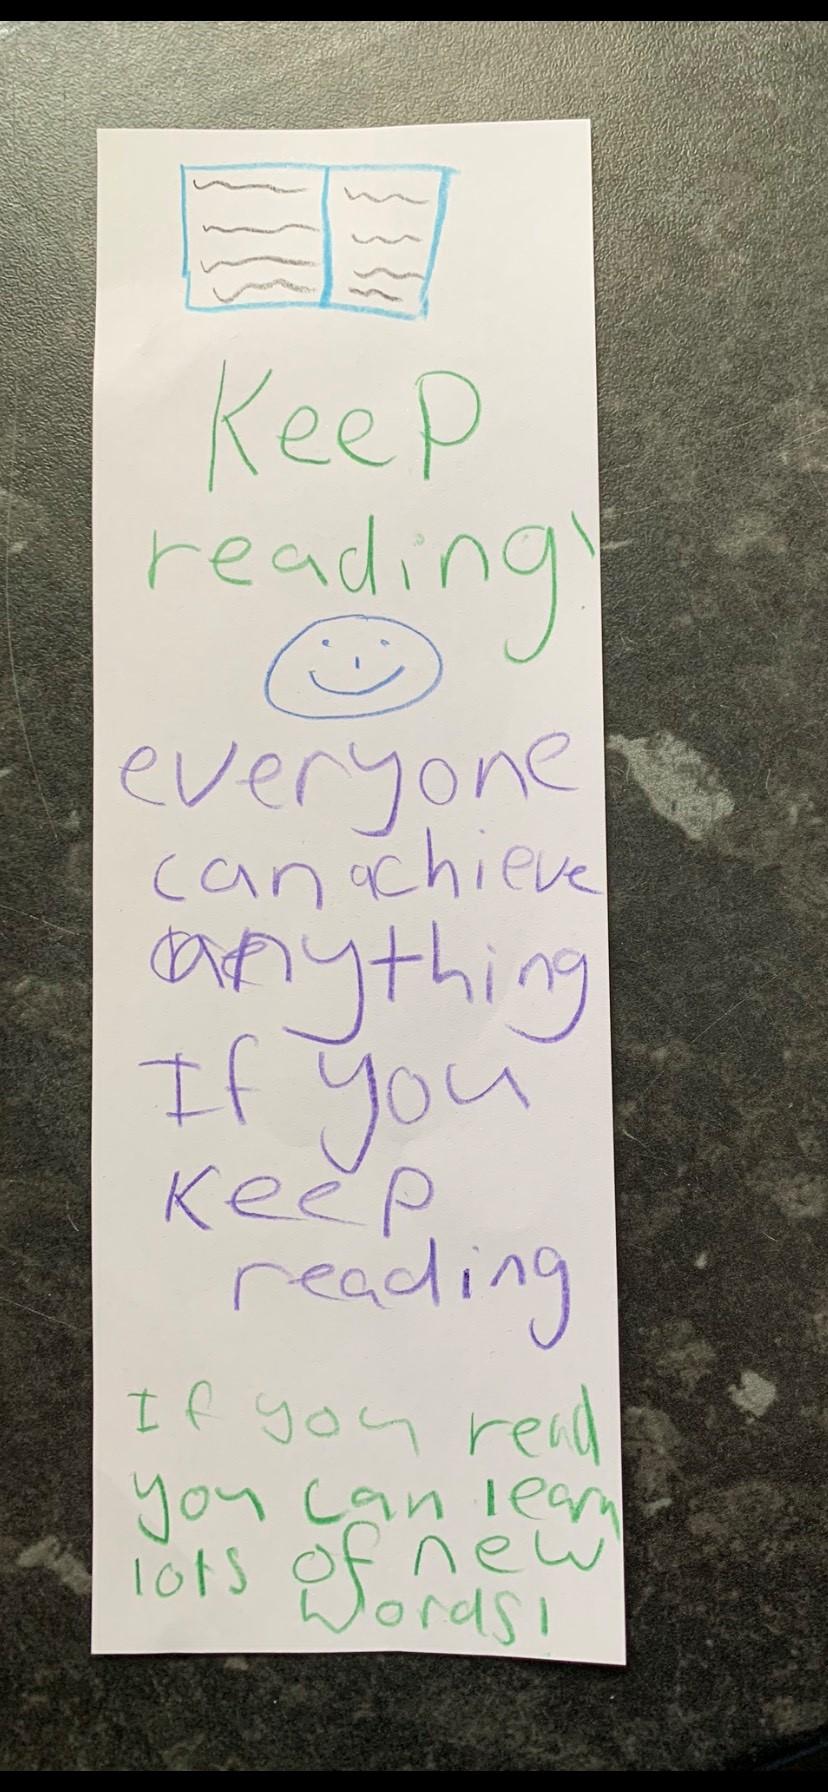 Keep
reading!
everyone
can achieve
anything
If you
Keep
reading
If you read
you can learn
lots of new
words!